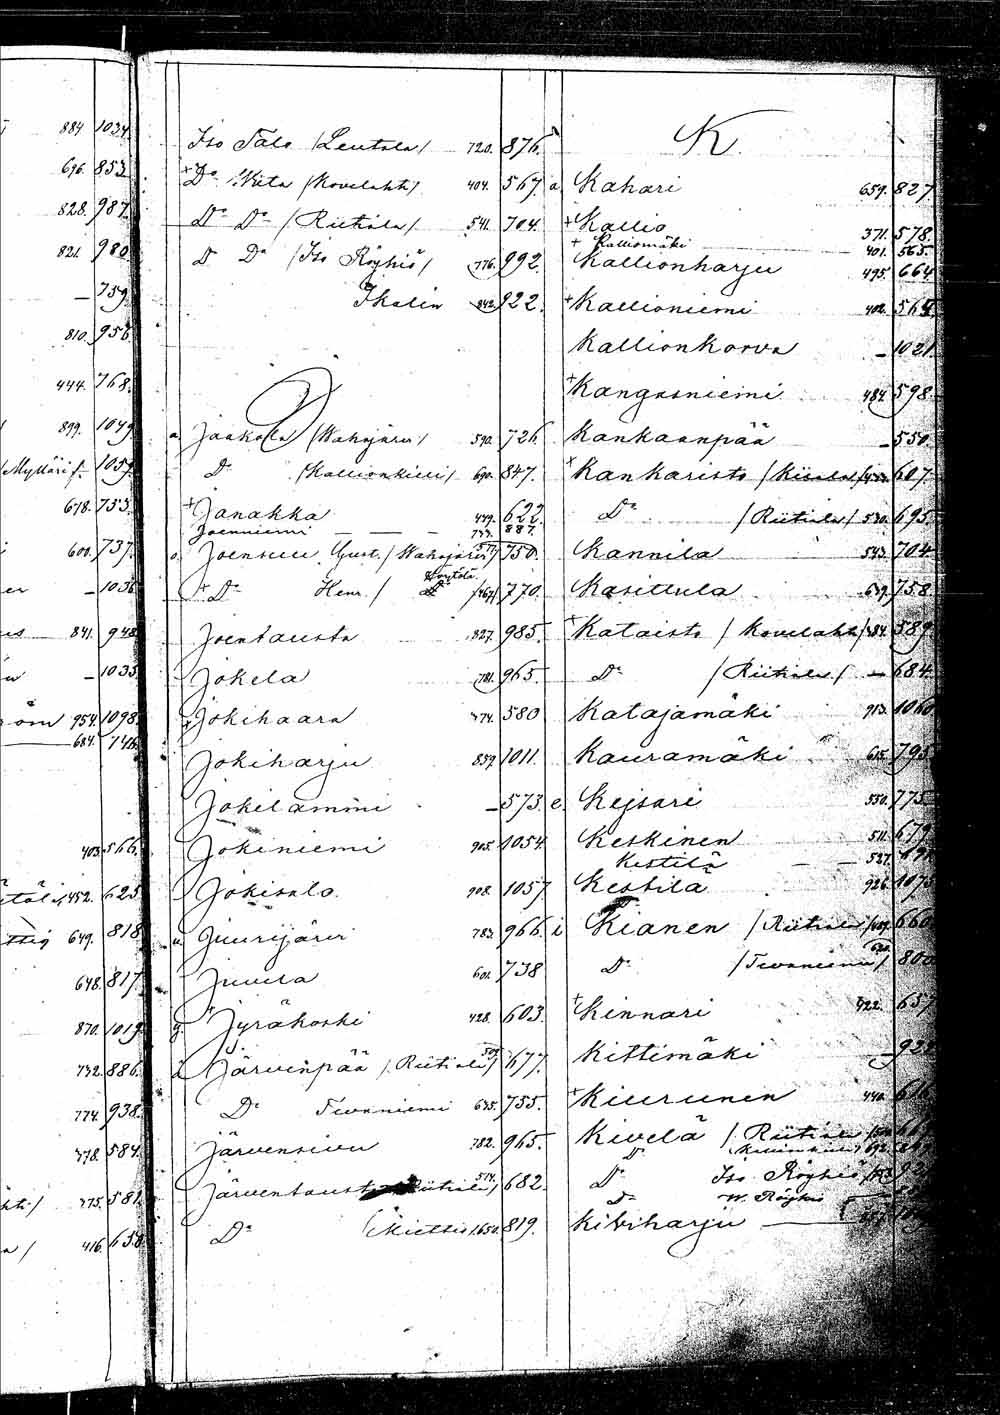 884 1034
696. 853
828. 987.
821. 980
– 759.
810. 956
444. 768.
899. 1049
1057.
678. 753.
600. 737.
er – 1036
841. 948
– 1035
954. 1098.
684. 746
403. 566.
452. 625
649. 818
648. 817.
870. 1019.
732. 886.
774. 938.
378. 584.
375. 581.
416. 638.
Iso Talo /Leutola/ 720. 876.
+ Do Wita /Kovelaht/ 404. 567.
Do Do /Riitiala/ 541. 704.
D Do /Iso Röyhiö/ 776. 992.
Ikalin 842. 922.
J
a Jaakola /Wahojärvi/ 590. 726.
Do /Kallionkieli/ 690. 847.
+ Janakka 449. 622.
Joenniemi – – – 733. 887.
o Joensuu Gust. /Wahojärvi/ 577 750.
+ Do Henr. / Pöytölä /467/ 770.
Joentausta 827. 985.
Jokela 781. 965.
+ Jokihaara 374. 580
Jokiharju 859. 1011.
Jokilammi – 573.
Jokiniemi 905. 1054
Jokisalo 908. 1057
u Juurijärvi 783. 966.
Juvela 601. 738
y + Jyräkoski 428. 603.
ä Järvinpää /Riitiala/ 509 677.
Do Tevaniemi 635. 755.
Järvensivu 782. 965.
Järventausta Riitiala/ 514. 682.
Do /Miettis/ 650. 819.
K.
a Kahari 659. 827
+ Kallio 371. 578.
+ Kalliomäki – 401. 565.
Kallionharju 495. 664
+ Kallioniemi 402. 564
Kallionkorva – 1021
+ Kangasniemi 484. 598.
Kankaanpää – 550.
+ Kankaristo / 607.
Do /Riitiala/ 530. 695.
Kannila 543. 704.
Kasittula 639. 758
+ Kataisto /Kovelaht/ 384. 589
Do /Riitiala/ – 684.
Katajamäki 913. 1060
Kauramäki 615. 795
e Kejsari 550. 775
Keskinen 511. 679
Kestilä – – 527. 691
Kestilä 926. 1075
i Kianen /Riitiala/ 660
Do /Tevaniemi/ 630. 800
+ Kinnari 422. 657
Kittimäki – 925
+ Kiurunen 440. 616
Kivelä /Riitiala
D /Kallionkieli/ 692.
D Iso Röyhiö
D W. Röyhiö
Kiviharju